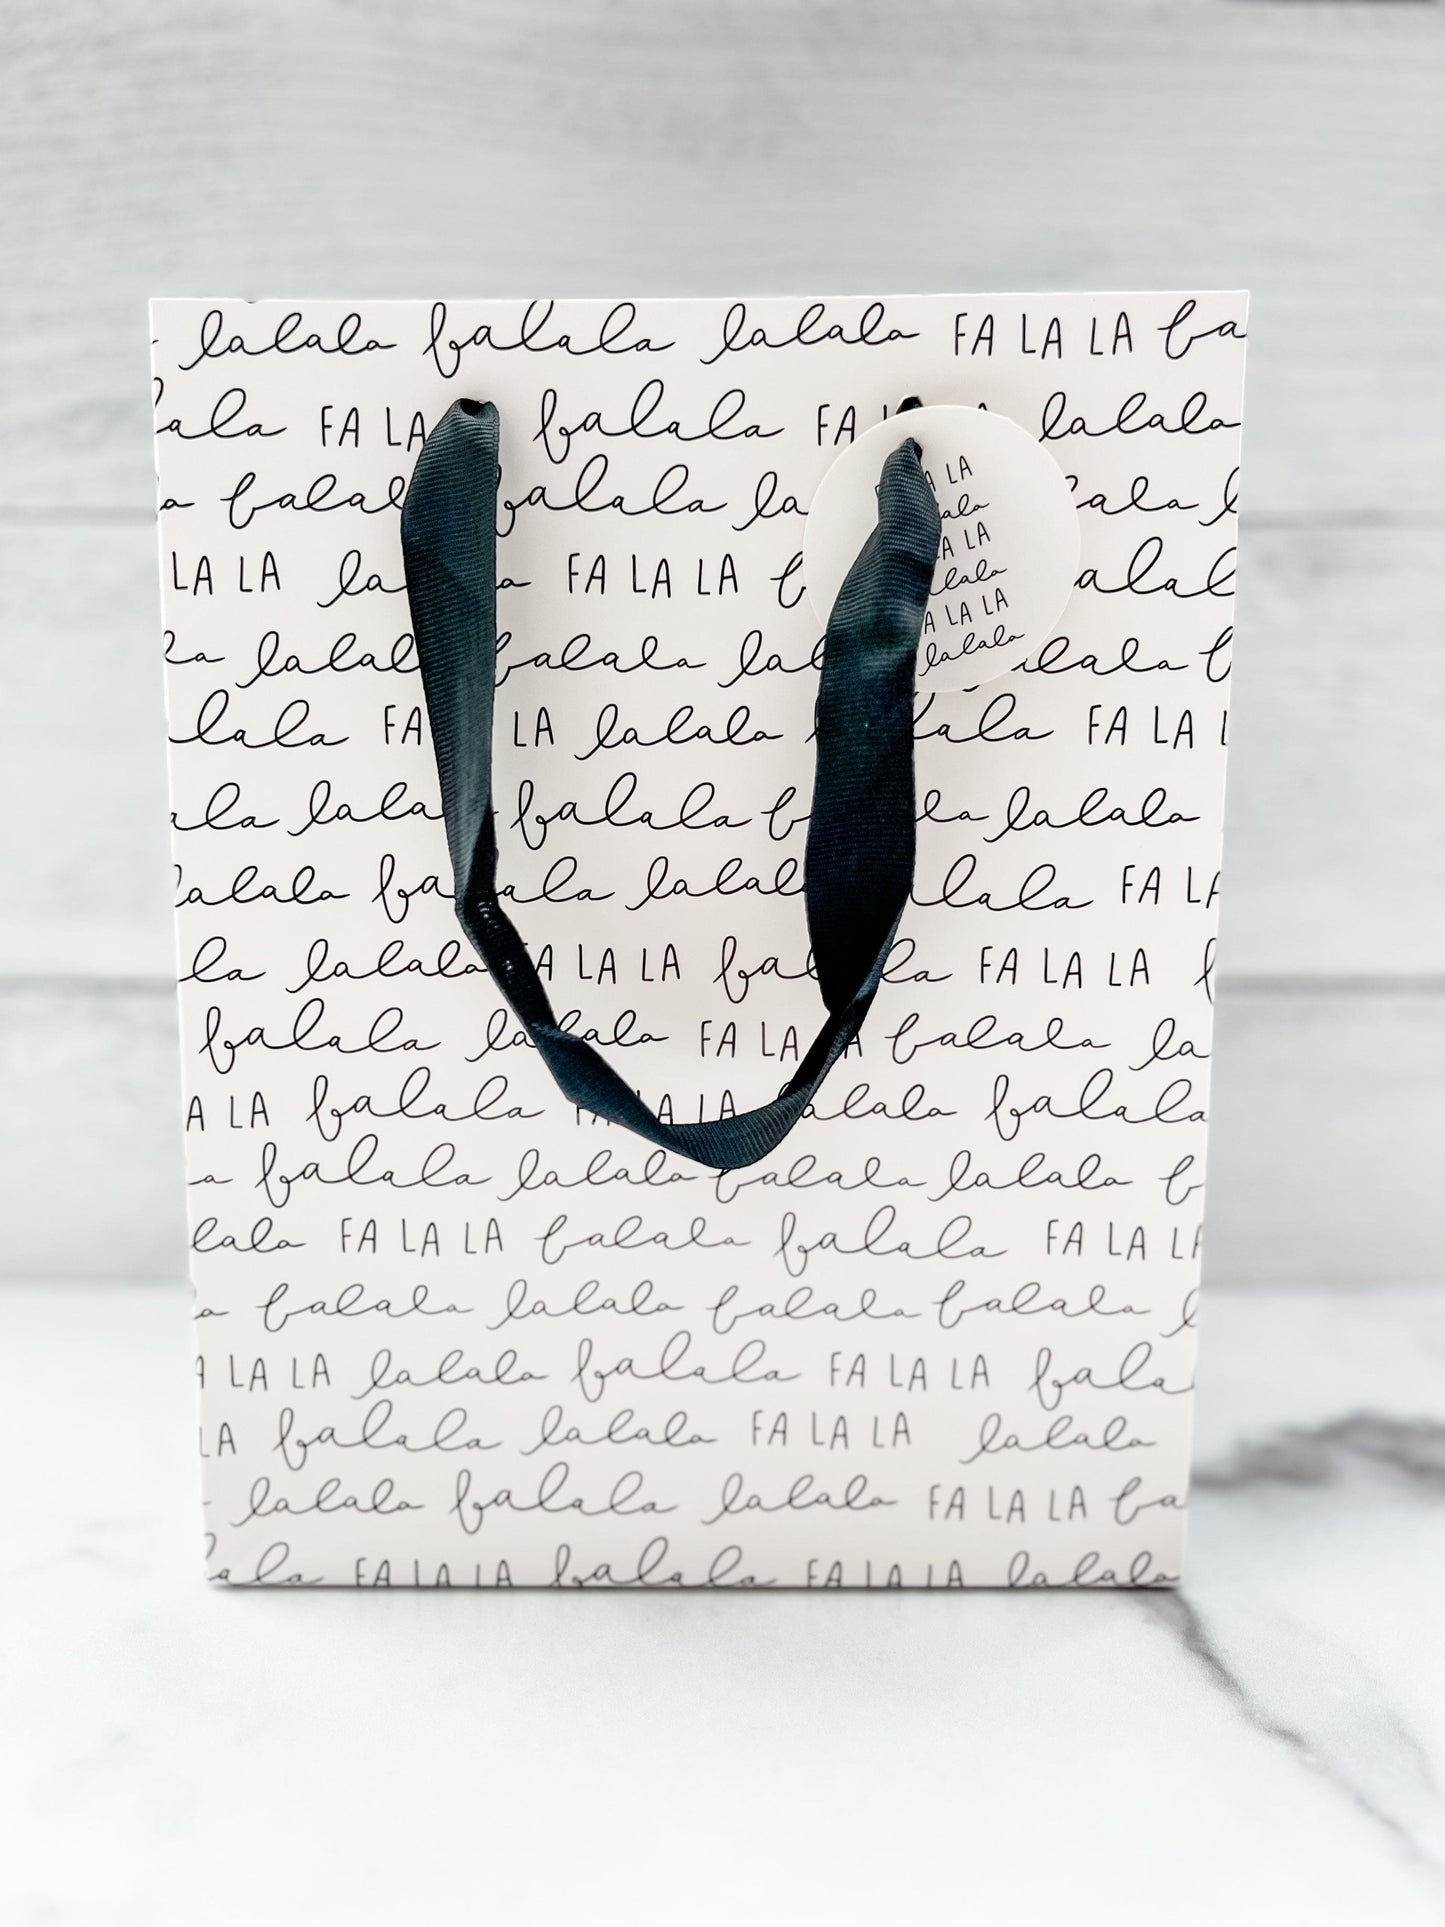 lalala falala lalala FA LA LA fa
ala FA LA falala FA lalala
a falal falala la ala l
LA LA la a FA LA LA f alal
la lalal falala lal lala f
lala FA LA lalala ala FA LA L
ala lala falala f la lalala
lalala fa ala lalal lala FA LA
la lalala A LA LA fal la FA LA LA f
falala la lala FA LA A falala la
A LA falala FA LA LA falala falala
a falala lalala falala lalala f
lala FA LA LA falala falala FA LA LA
a falala lalala falala falala l
A LA LA lalala falala FA LA LA fala
LA falala lalala FA LA LA lalala
lalala falala lalala FA LA LA fa
ala FA LA LA falala FA LA LA lalala
A LA
ala
A LA
lala
A LA LA
lalala